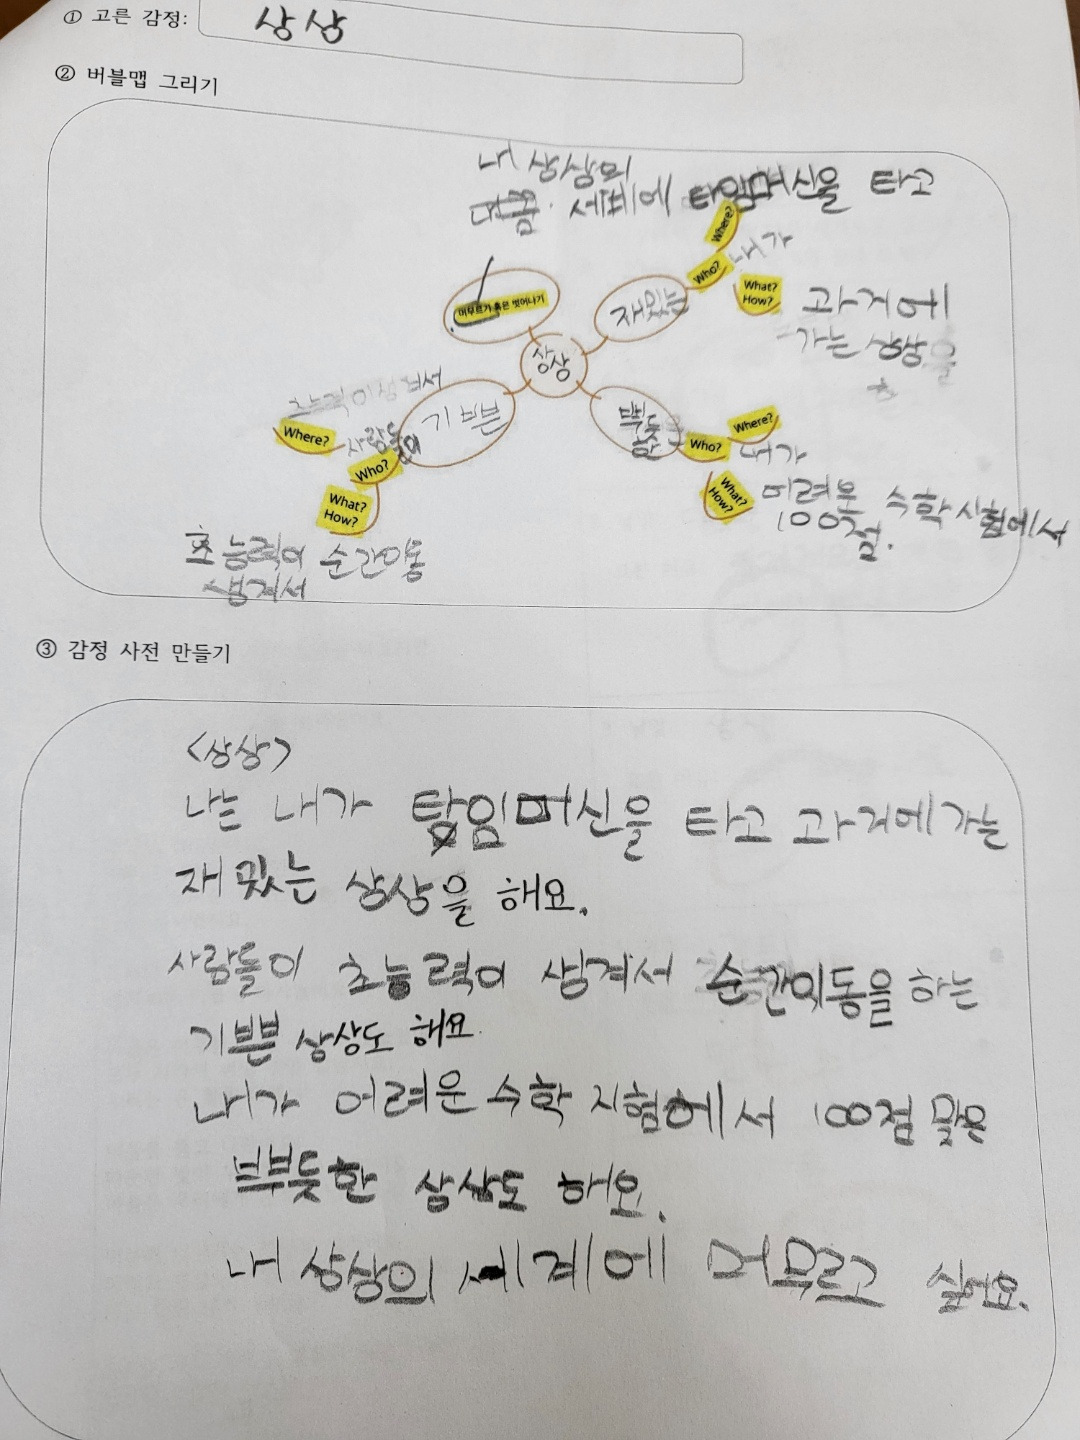 ① 고른 감정:
상상
② 버블맵 그리기
내 상상의
세계에 타임머신을 타고
Where?
Who?
내가
What?
How?
과거에
가는 상상을
머무르기 혹은 벗어나기
재밌는
상상
초능력이 생겨서
Where?
사람들이
Who?
기쁜
What?
How?
초능력이 순간이동
생겨서
Who?
Where?
내가
What?
How?
어려운 수학 시험에서
100점.
③ 감정 사전 만들기
<상상>
나는 내가 탐임머신을 타고 과거에 가는
재밌는 상상을 해요.
사람들이 초능력이 생겨서 순간이동을 하는
기쁜 상상도 해요.
내가 어려운 수학 시험에서 100점 맞은
뿌듯한 상상도 해요.
내 상상의 세계에 머무르고 싶어요.